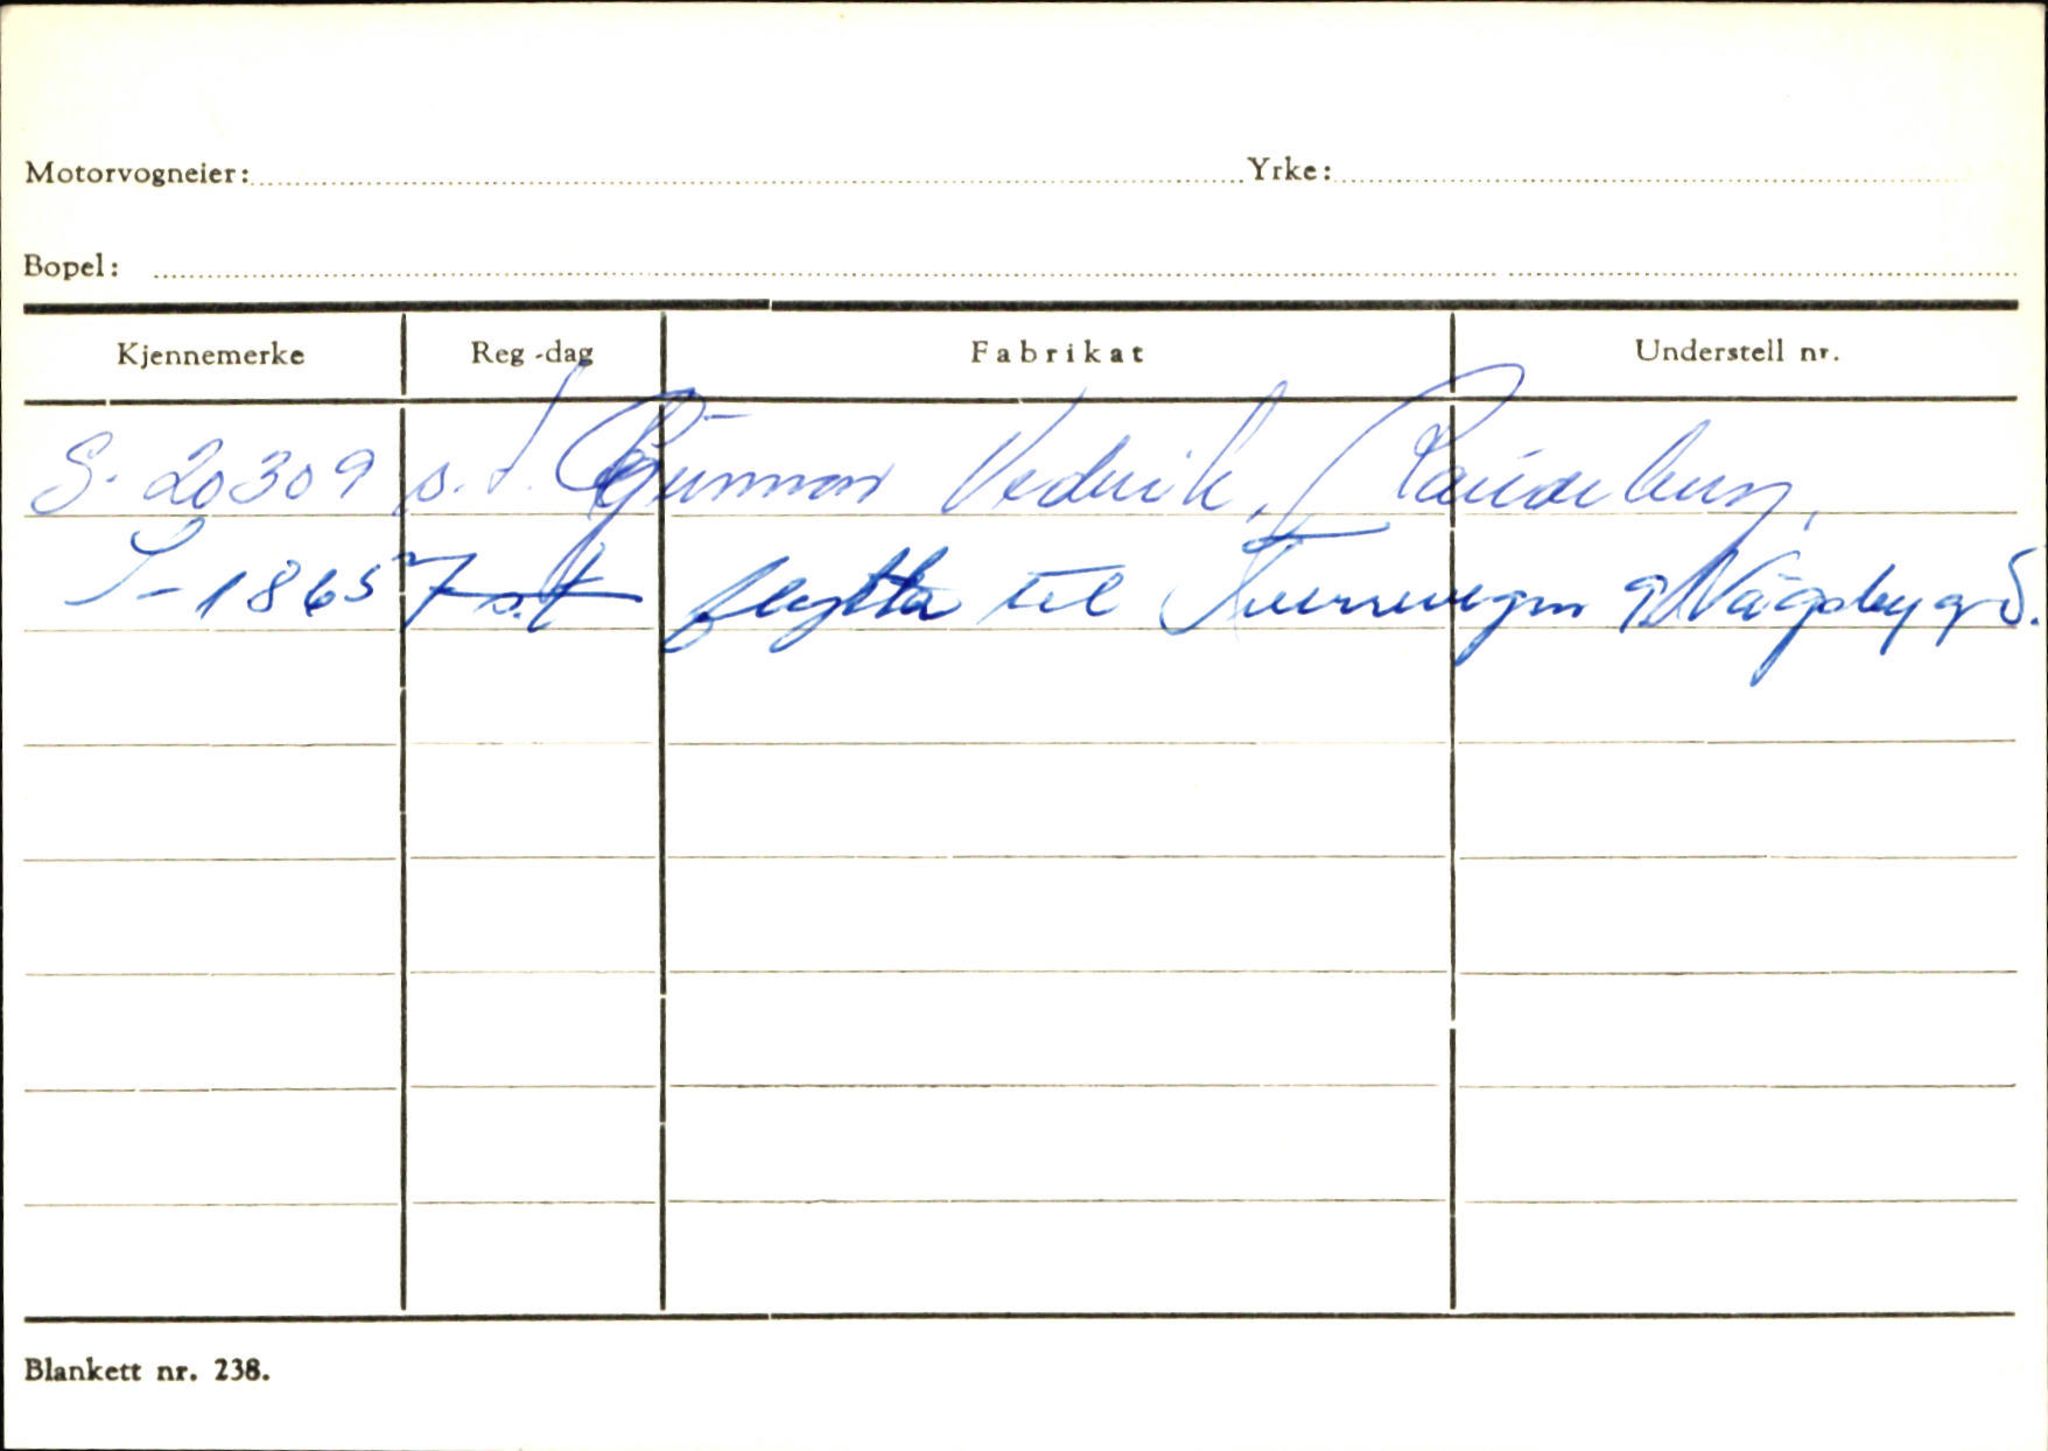 Motorvogneier: Yrke:
Bopel:
Kjennemerke Reg.-dag Fabrikat Understell nr.
S-20309 s.t. Gunnar Vedvik, Raudeberg,
S-18657 s.t flytta til Tverrvegen 9 Vågsbygd.
Blankett nr. 238.